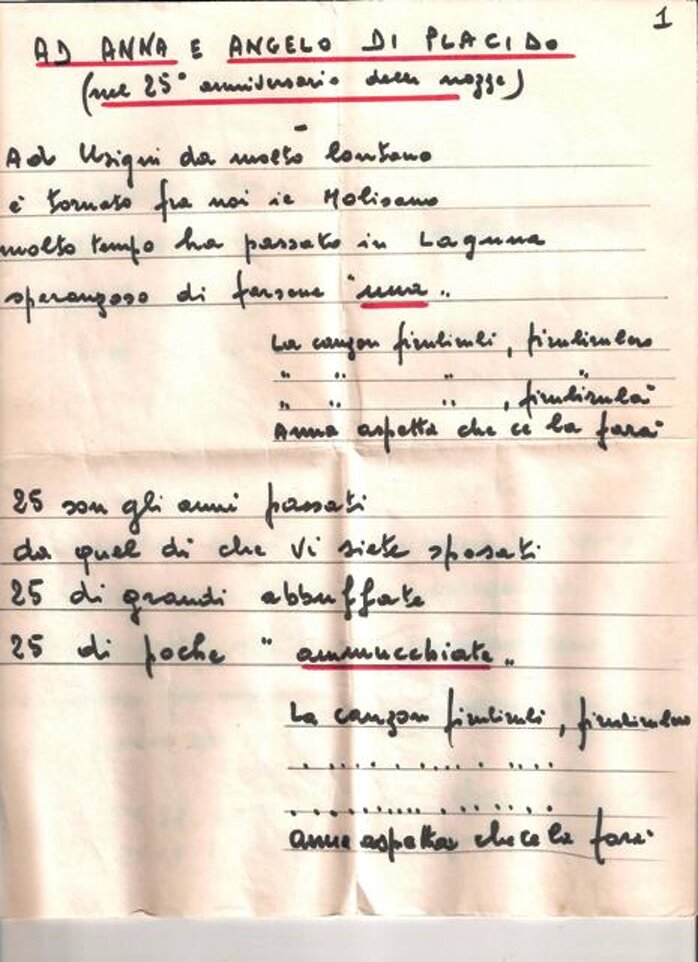 1
AD ANNA E ANGELO DI PLACIDO
(nel 25° anniversario delle nozze)
Ad Usigni da molto lontano
è tornato fra noi il Molisano
molto tempo ha passato in Laguna
speranzoso di farsene "una"
La canzon firulirulì, firulirulero
" " " "
" " " , firulirulà
Anna aspetta che ce la farà
25 son gli anni passati
da quel dì che vi siete sposati
25 di grandi abbuffate
25 di poche "ammucchiate"
La canzon firulirulì, firulirulero
. . . . . . . . . . . . . . .
. . . . . . . . . . . . . . . . .
anna aspetta che ce la farà